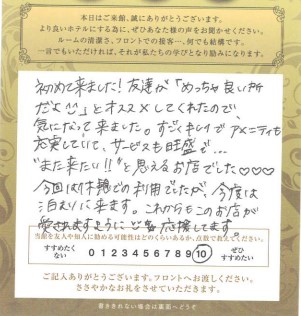 本日はご来館、誠にありがとうございます。
より良いホテルにする為に、ぜひあなた様の声をお聞かせください。
ルームの清潔さ、フロントでの接客…何でも結構です。
一言でもいただければ、それが私たちの学びとなり励みになります。
初めて来ました！友達が「めっちゃ良い所
だよ^^」とオススメしてくれたので、
気になって来ました。すごくキレイでアメニティも
充実していて、サービスも旺盛で…
"また来たい!!"と思えるお店でした♡♡♡
今回は休憩での利用でしたが、今度は
泊まりに来ます。これからもこのお店が
愛されますように 応援してます。
当館を友人や知人に勧める可能性はどのくらいあるか、点数で教えてください。
すすめたくない 0 1 2 3 4 5 6 7 8 9 10 ぜひすすめたい
ご記入ありがとうございます。フロントへお渡しください。
ささやかなお礼をさせていただきます。
書ききれない場合は裏面へどうぞ